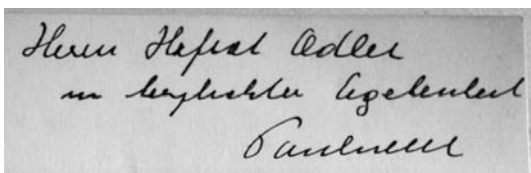 Herrn Hofrat Adler
in herzlichster Ergebenheit